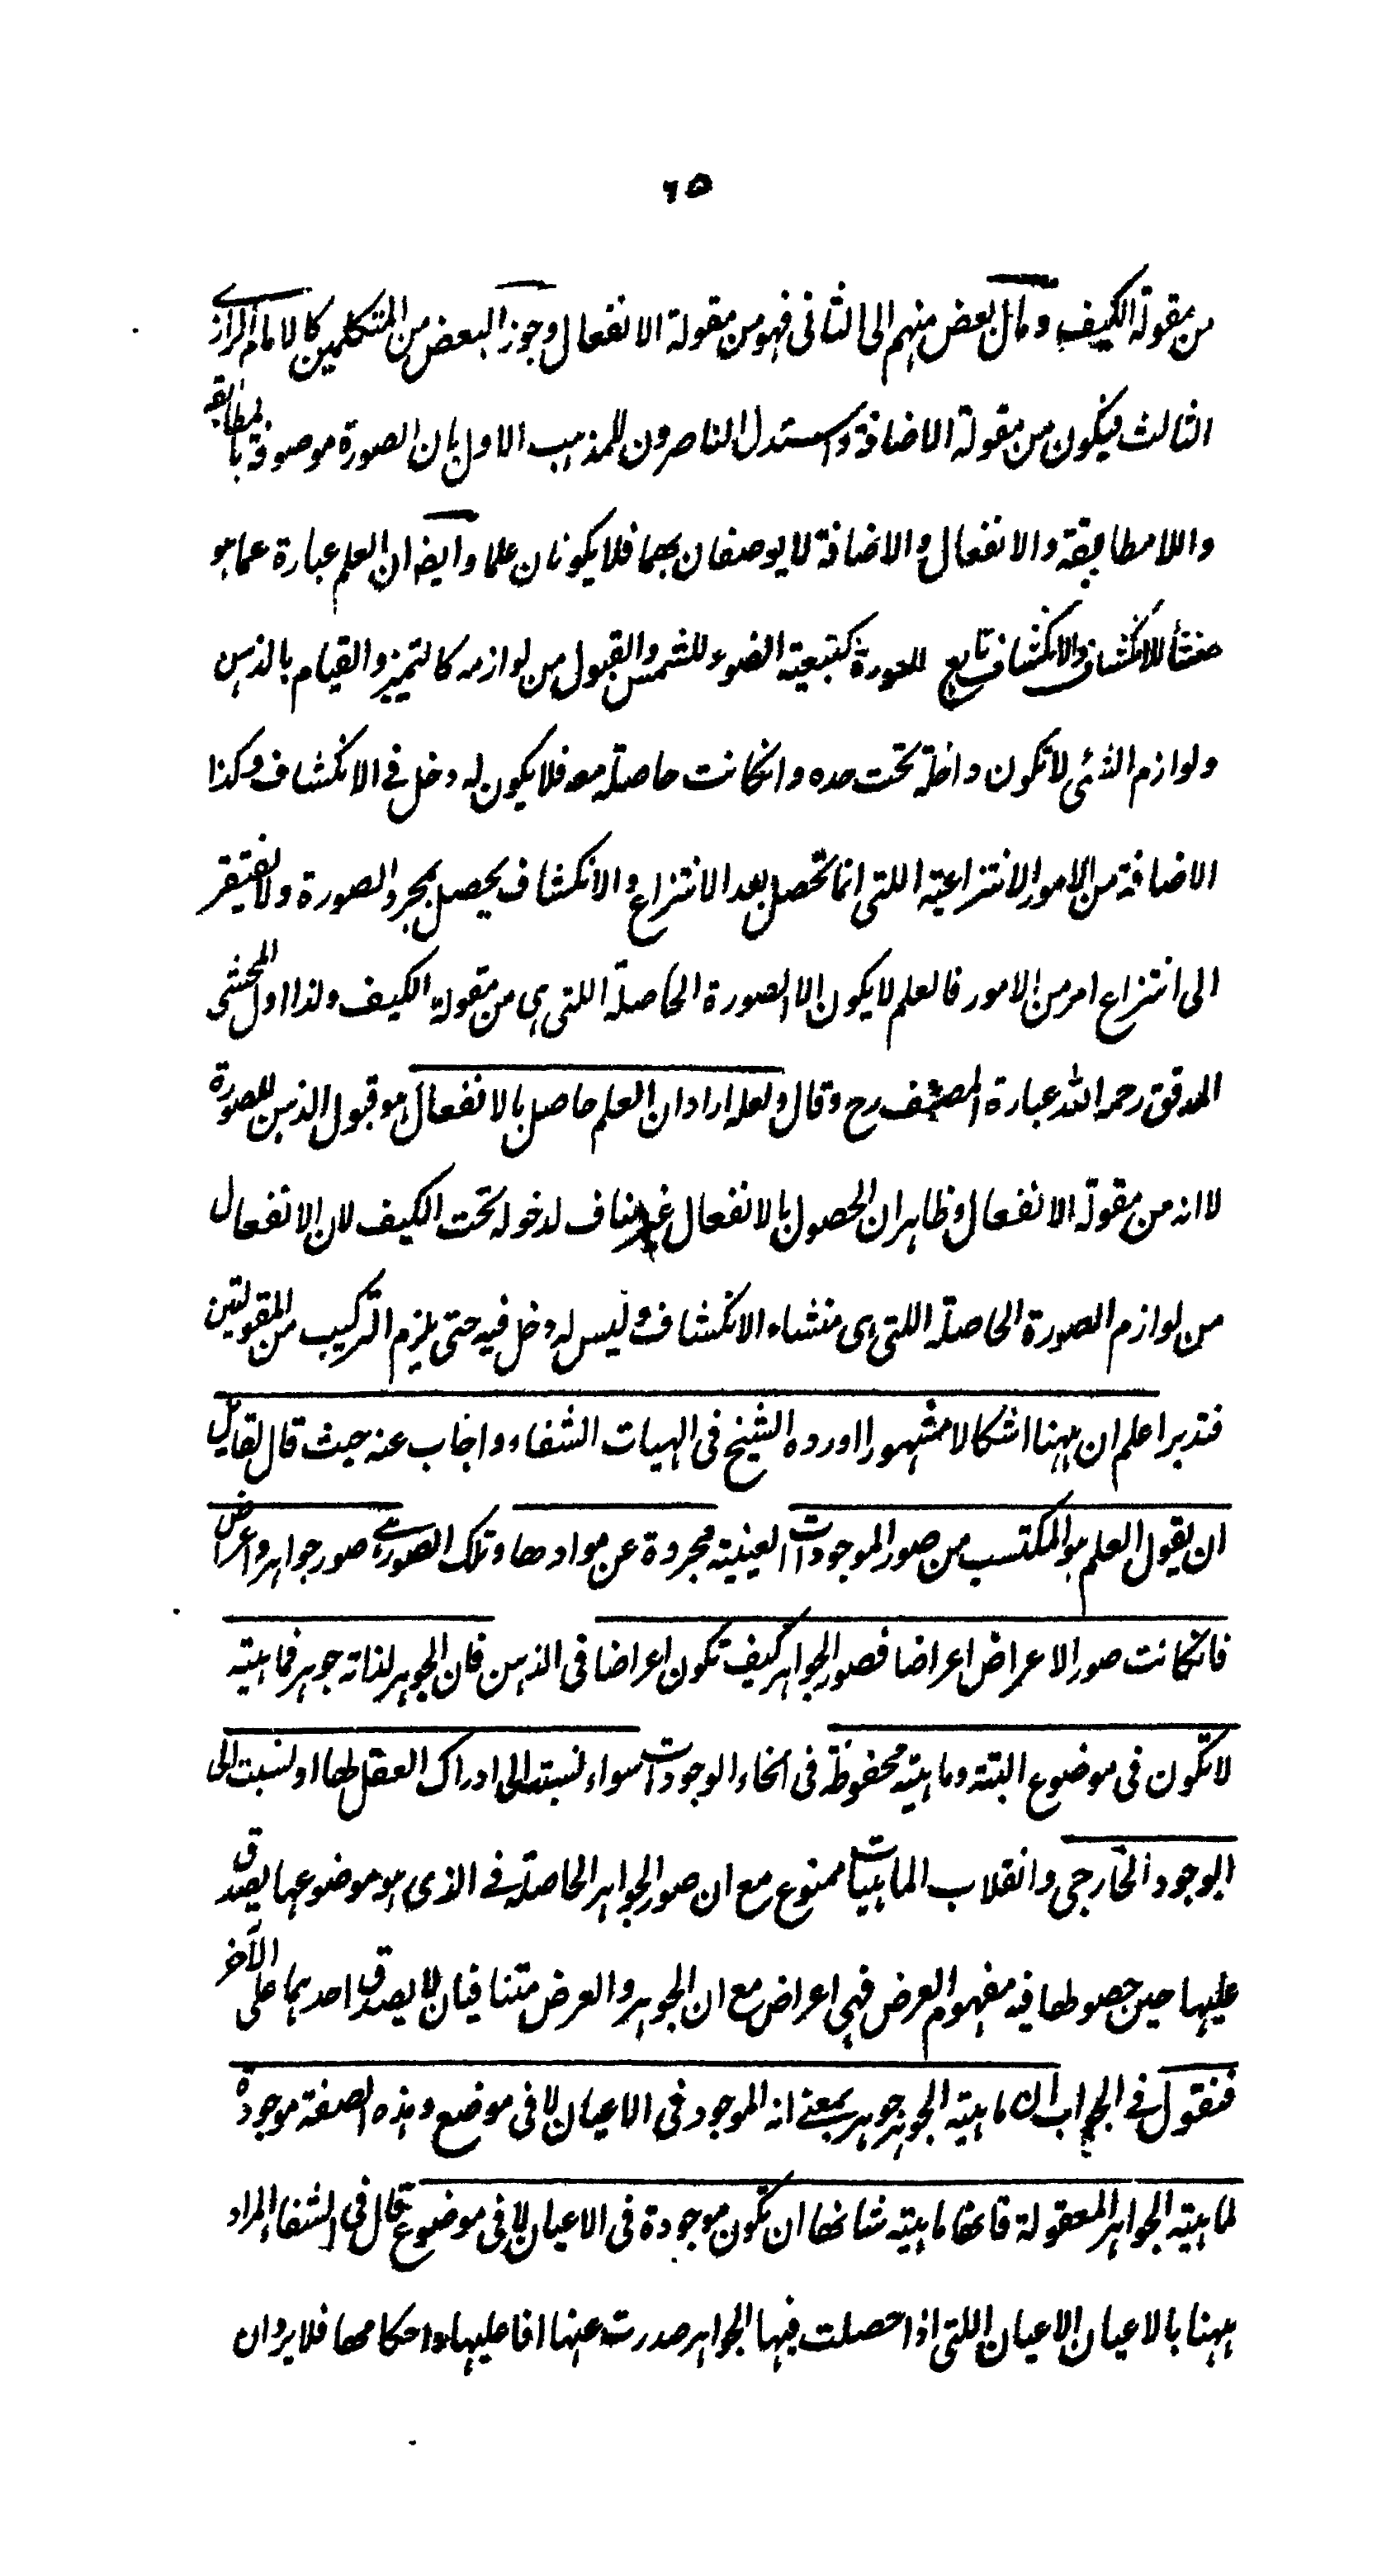 ٦٥
من مقولة الكيف ومال بعض منهم الى الثانى فهو من مقولة الانفعال وجوز البعض من المتكلمين كالامام الرازى
الثالث فيكون من مقولة الاضافة واستدل الناصرون للمذهب الاول بان الصورة موصوفة بالمطابقة
واللامطابقة والانفعال والاضافة لا يوصفان بهما فلا يكونان علما وايضا ان العلم عبارة عما هو
منشأ للانكشاف والانكشاف تابع للصورة كتبعية الضوء للشمس والقبول من لوازمه كالتميز والقيام بالذهن
ولوازم الشئى لا تكون داخلة تحت حده وانكانت حاصلة معه فلا يكون له دخل فى الانكشاف وكذا
الاضافة من الامور الانتزاعية اللتى انما تحصل بعد الانتزاع والانكشاف يحصل بمجرد الصورة ولا يفتقر
الى انتزاع امر من الامور فالعلم لا يكون الا الصورة الحاصلة اللتى هى من مقولة الكيف ولذا اول المحشى
المدقق رحمه الله عبارة المصنف رح وقال ولعله اراد ان العلم حاصل بالانفعال هو قبول الذهن للصورة
لا انه من مقولة الانفعال وظاهر ان الحصول بالانفعال غير مناف لدخوله تحت الكيف لان الانفعال
من لوازم الصورة الحاصلة اللتى هى منشاء الانكشاف وليس له دخل فيه حتى يلزم التركيب من المقولتين
فتدبر اعلم ان ههنا اشكالا مشهورا اورده الشيخ فى الهيات الشفاء واجاب عنه حيث قال لقايل
ان يقول العلم هو المكتسب من صور الموجودات العينية مجردة عن موادها وتلك الصور هى صور جواهر واعراض
فانكانت صور الاعراض اعراضا فصور الجواهر كيف تكون اعراضا فى الذهن فان الجوهر لذاته جوهر فماهيته
لا تكون فى موضوع البتة وماهيته محفوظة فى انحاء الوجودات سواء نسبت الى ادراك العقل لها او نسبت الى
الوجود الخارجى وانقلاب الماهيات ممنوع مع ان صور الجواهر الحاصلة فى الذى هو موضوعها يصدق
عليها حين حصولها فيه مفهوم العرض فهى اعراض مع ان الجوهر والعرض متنافيان لا يصدق احدهما على الآخر
فنقول فى الجواب ان ماهية الجوهر جوهر بمعنى انه الموجود فى الاعيان لا فى موضع وهذه الصفة موجودة
لماهية الجواهر المعقولة فانها ماهية شانها ان تكون موجودة فى الاعيان لا فى موضوع قال فى الشفاء المراد
ههنا بالاعيان الاعيان اللتى اذا حصلت فيها الجواهر صدرت عنها افاعليها واحكامها فلا يرد ان